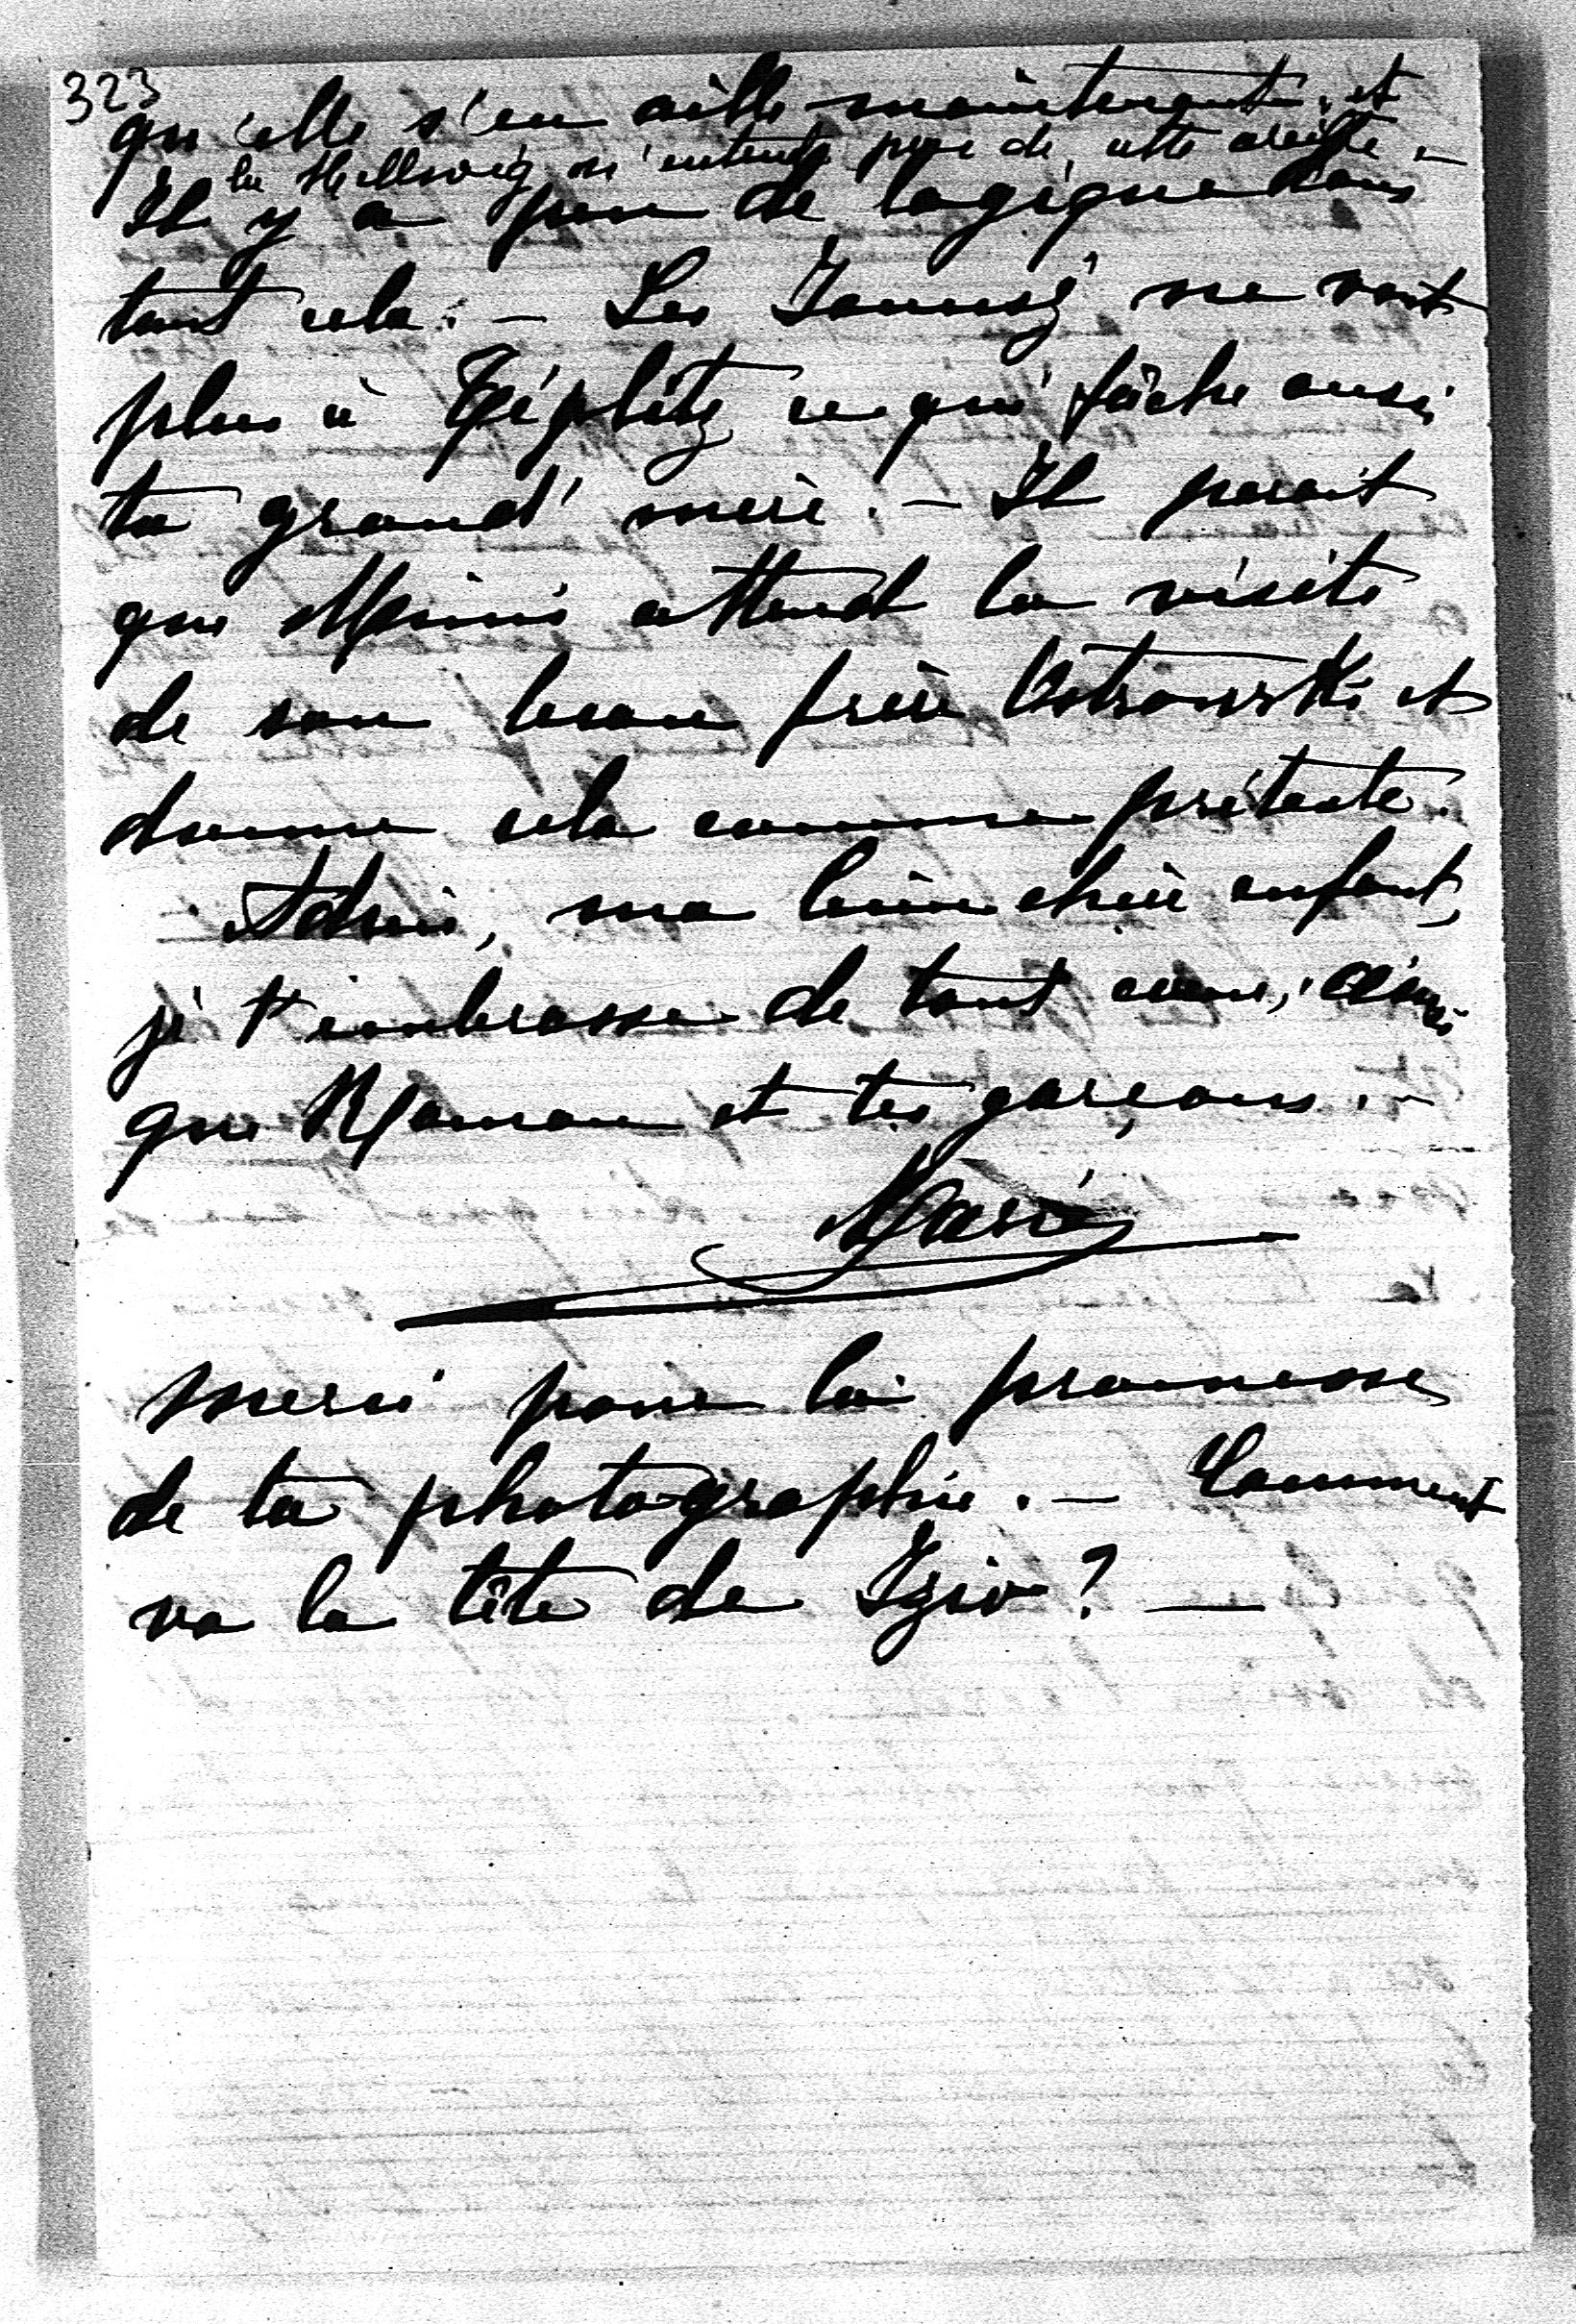 323
qu'elle s'en aille maintenant. et
la Hellwig n'entend pas de cette oreille –
Il y a peu de logique dans
tout cela. – Les Janusz ne vont
plus à Téplitz ce qui fâche aussi
ta grand'mère. – Il parait
que Mimi attend la visite
de son beau frère Ostrowski et
donne cela comme prétexte.
Adieu, ma bien chère enfant,
je t'embrasse de tout cœur, ainsi
que Roman et tes garçons. –
Marie
merci pour la promesse
de ta photographie. – Comment
va la tête de Izio ? –